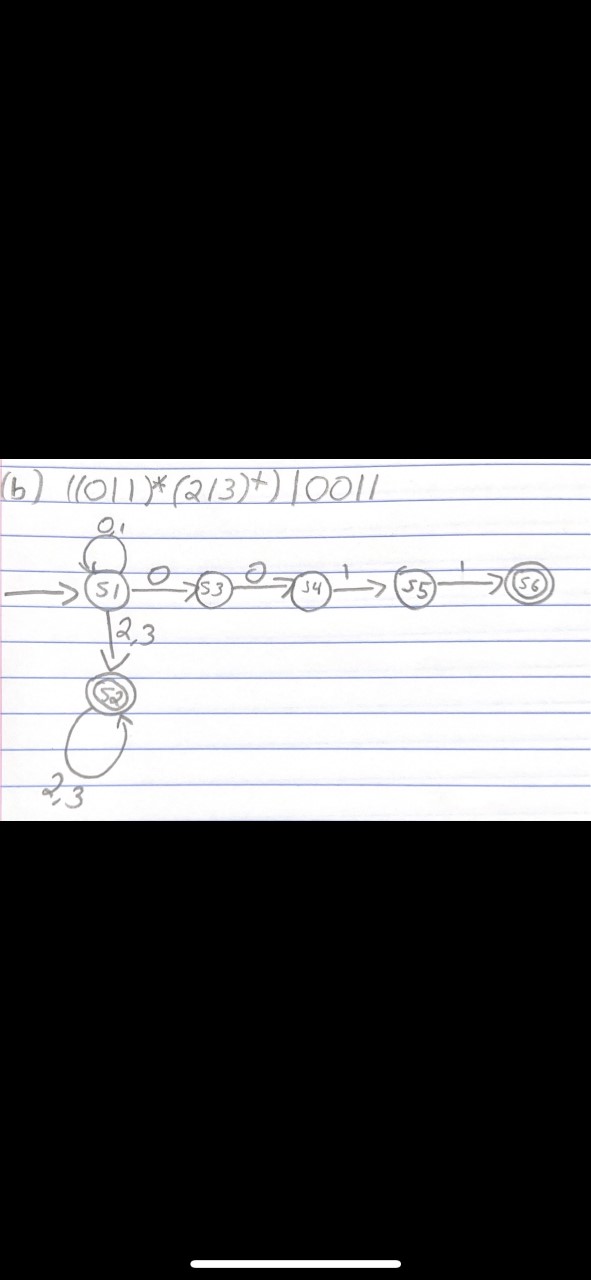 (b) ((0|1)*(2|3)+)|0011
0,1
S1 0 S3 0 S4 1 S5 1 S6
2,3
S2
2,3